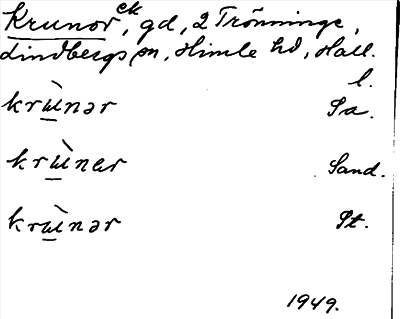 Krunor ek, gd, 2 Trönninge,
Lindbergs sn, Himle hd, Hall.
l.
krɯ̀nər Sa.
krɯ̀nər Sand.
krɯ̀nər St.
1949.